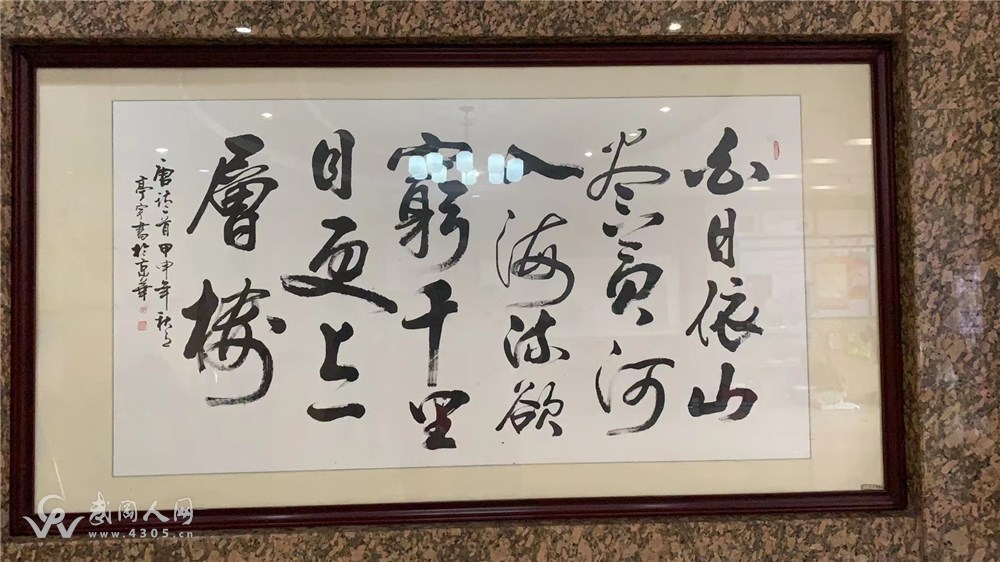 白日依山
尽黄河
入海流欲
窮千里
目更上一
層楼
唐诗一首甲申年秋月
亭宇書於京華
武冈人网
www.4305.cn